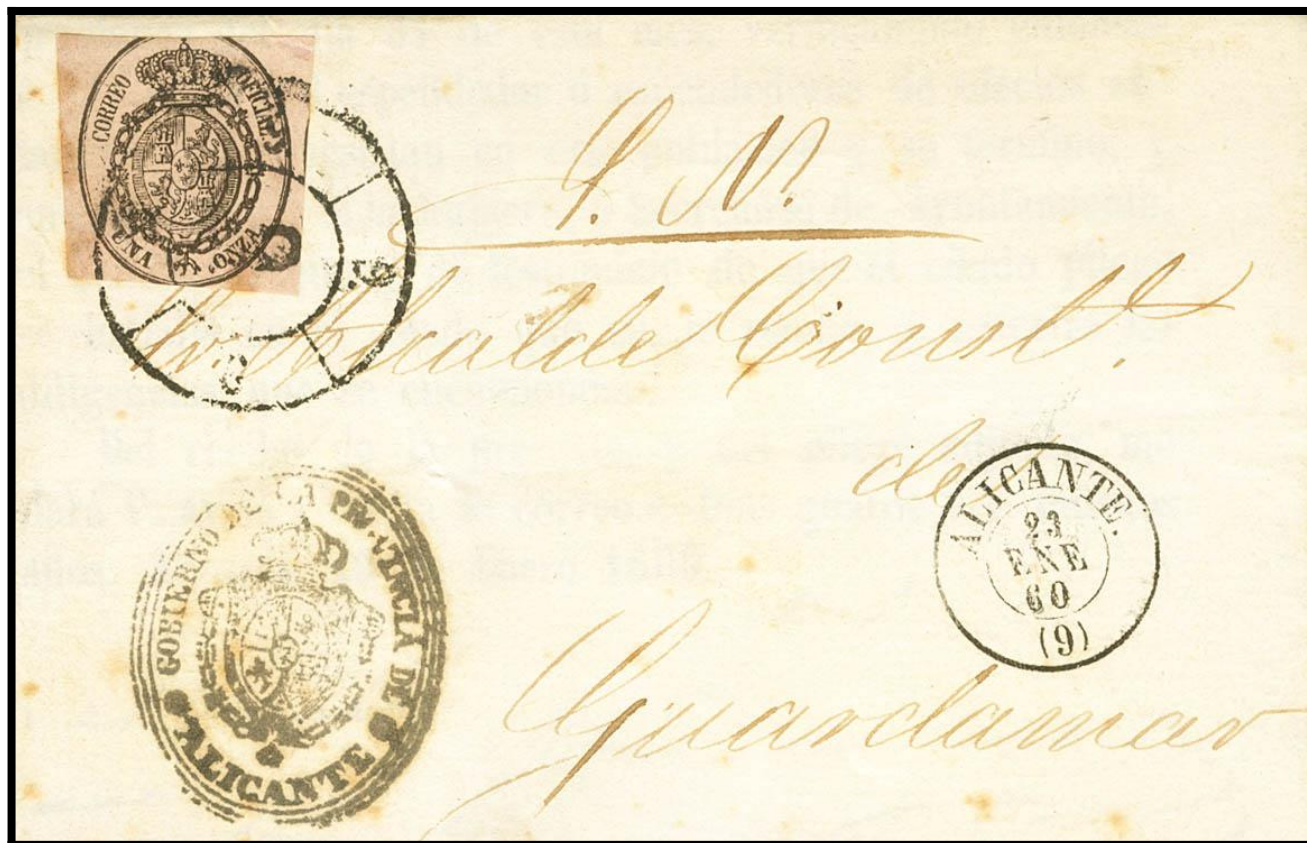 CORREO OFICIAL
UNA ONZA.
S. N.
Sr. Alcalde Const.l
de
Guardamar
ALICANTE.
23
ENE
60
(9)
GOBIERNO DE LA PROVINCIA DE
ALICANTE